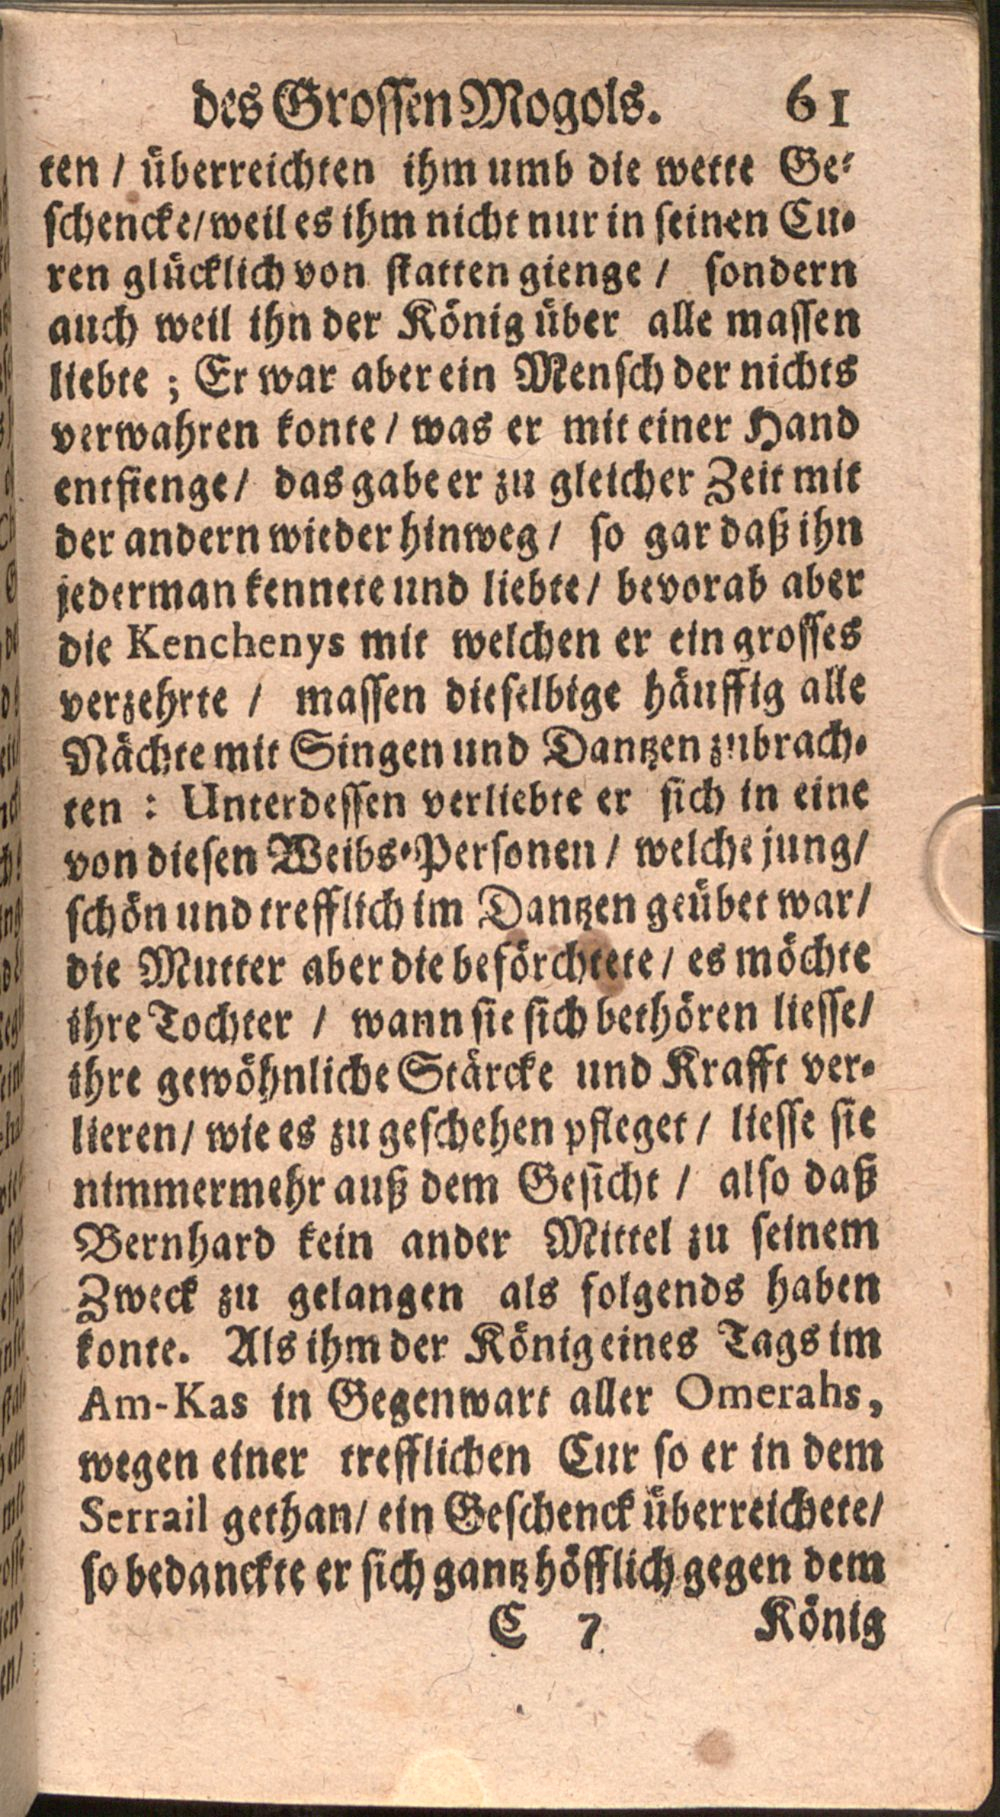 des Grossen Mogols. 61
ten / überreichten ihm umb die wette Ge-
schencke/weil es ihm nicht nur in seinen Cu-
ren glücklich von statten gienge / sondern
auch weil ihn der König über alle massen
liebte ; Er war aber ein Mensch der nichts
verwahren konte / was er mit einer Hand
entfienge / das gabe er zu gleicher Zeit mit
der andern wieder hinweg / so gar daß ihn
jederman kennete und liebte / bevorab aber
die Kenchenys mit welchen er ein grosses
verzehrte / massen dieselbige häuffig alle
Nächte mit Singen und Dantzen zubrach-
ten : Unterdessen verliebte er sich in eine
von diesen Weibs-Personen / welche jung/
schön und trefflich im Dantzen geübet war/
die Mutter aber die beförchtete / es möchte
ihre Tochter / wann sie sich bethören liesse/
ihre gewöhnliche Stärcke und Krafft ver-
lieren/ wie es zu geschehen pfleget / liesse sie
nimmermehr auß dem Gesicht / also daß
Bernhard kein ander Mittel zu seinem
Zweck zu gelangen als folgends haben
konte. Als ihm der König eines Tags im
Am-Kas in Gegenwart aller Omerahs,
wegen einer trefflichen Cur so er in dem
Serrail gethan/ ein Geschenck überreichete/
so bedanckte er sich gantz höfflich gegen dem
C 7 König